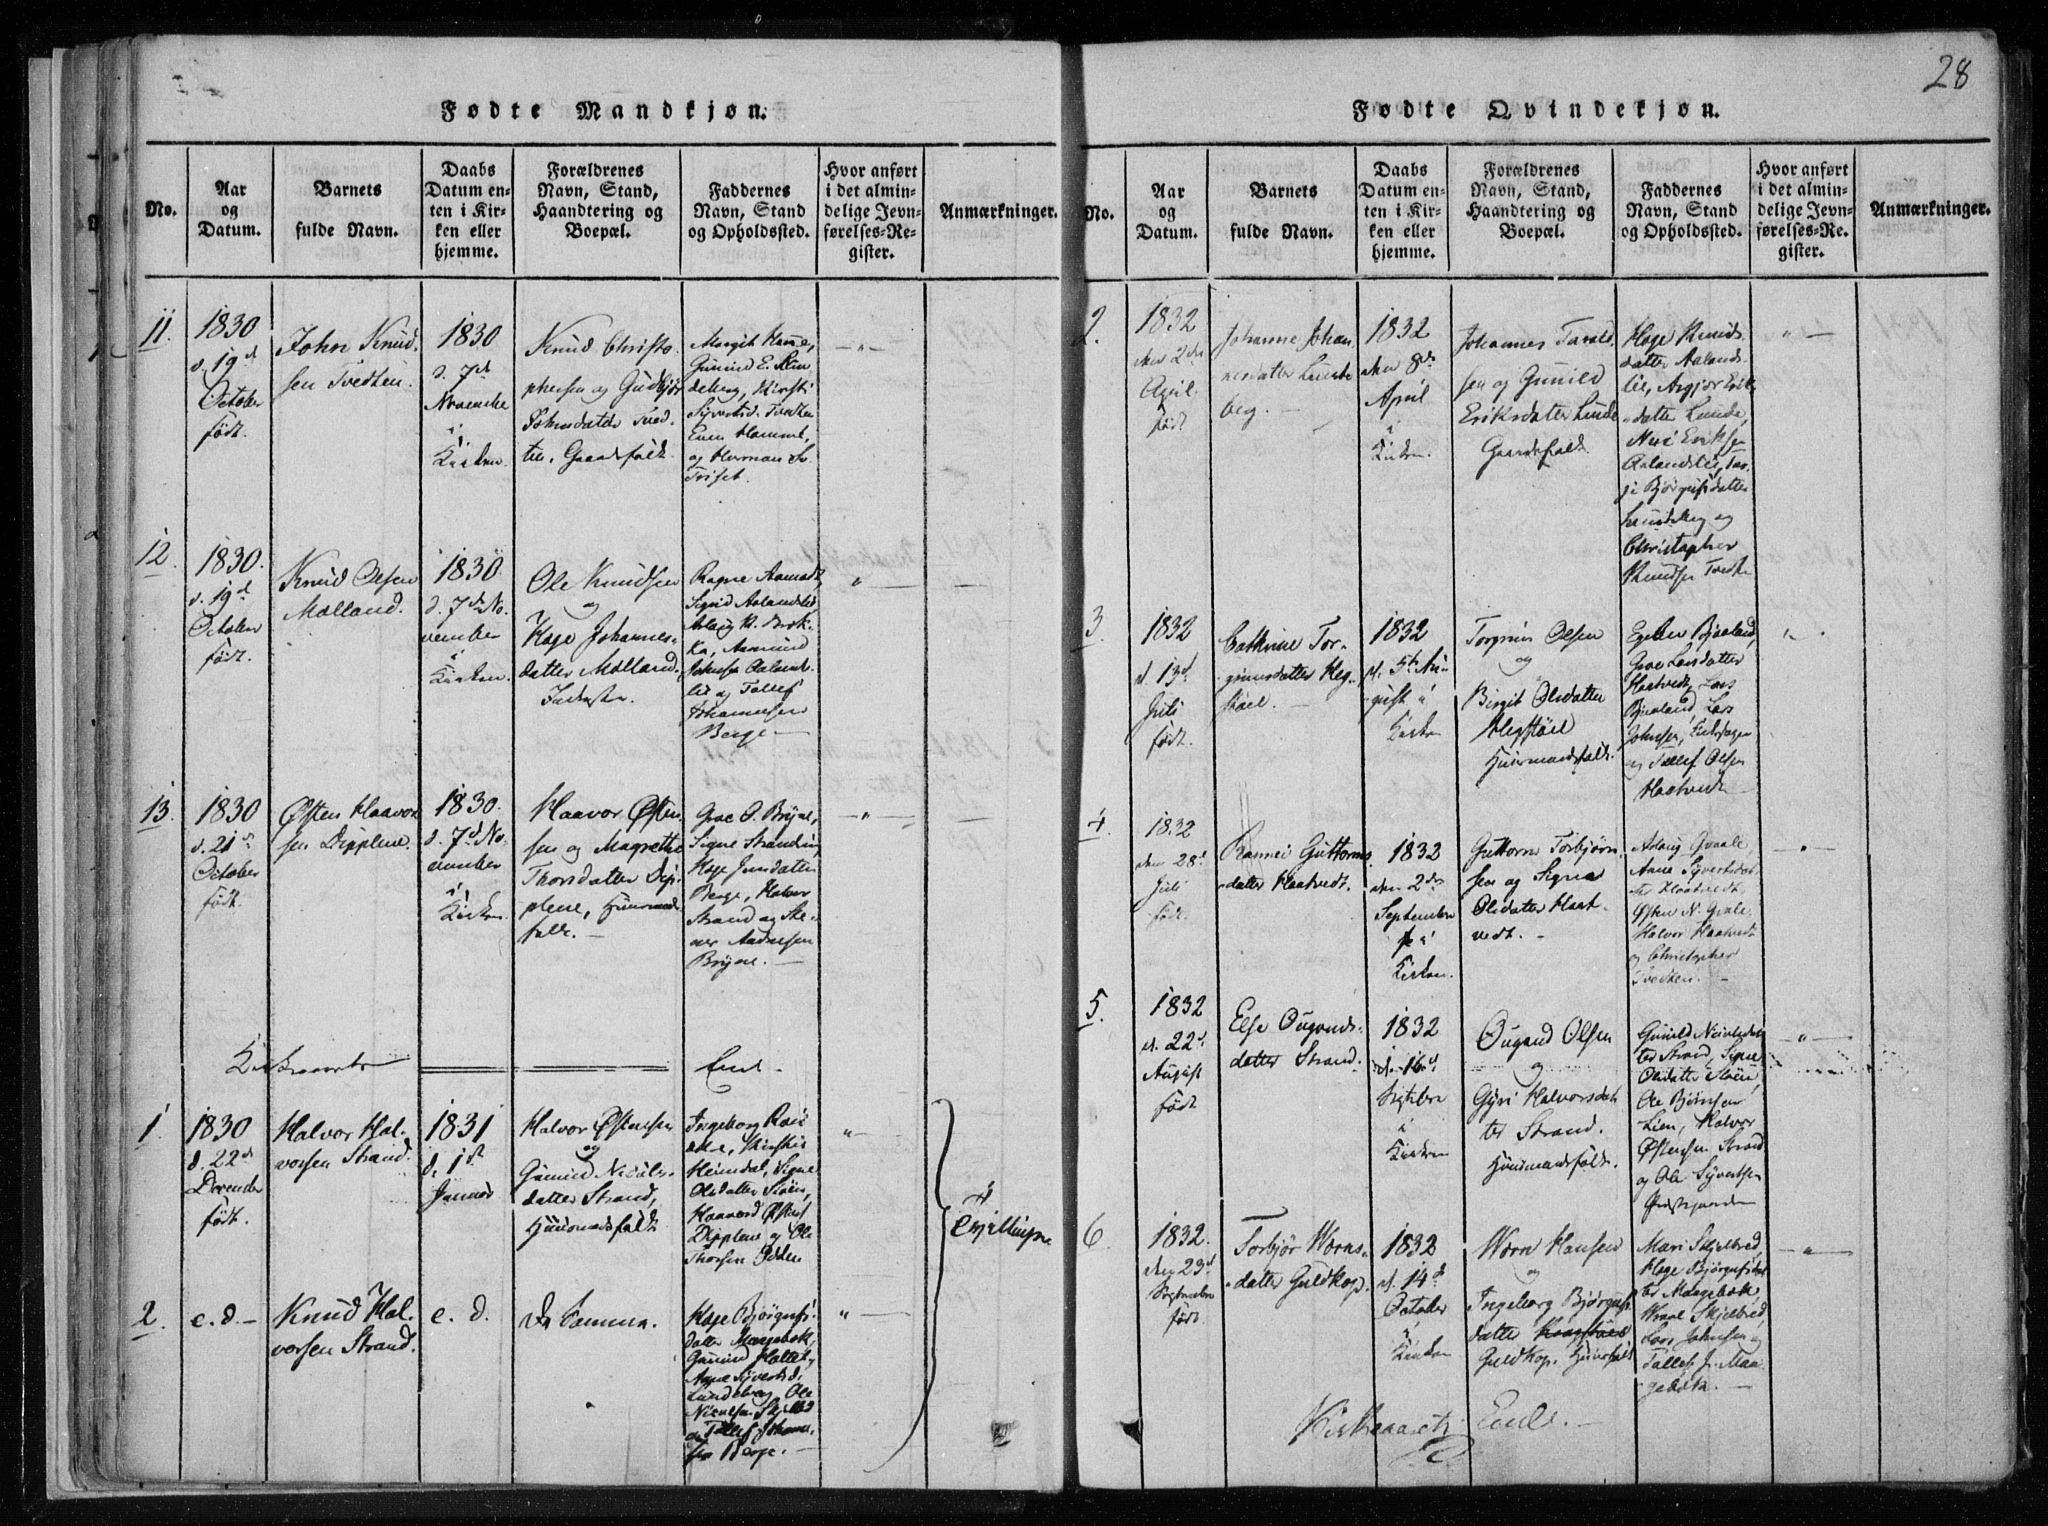 28
Fødte Mandkjøn.
No.
Aar
og
Datum.
Barnets
fulde Navn.
Daabs
Datum en-
ten i Kir-
ken eller
hjemme.
Forældrenes
Navn, Stand,
Haandtering og
Boepæl.
Faddernes
Navn, Stand
og Opholdssted.
Hvor anført
i det almin-
delige Jevn-
førelses-Re-
gister.
Anmærkninger.
11.
1830
d. 19d
October
født.
John Knud-
sen Tvedten.
1830
d. 7d
i
Kirken.
Knud Christo
phersen og Gudbjør
Johnsdatter Tved-
ten. Gaardsfolk
Margit
Gunild E.
deberg, Kirsti
Syvertsd. Tvedten
Even
og Herman
12.
1830.
d. 19d
October
født.
Knud Olsen
Mælland.
1830.
d. 7de No-
vember
i
Kirken.
Ole Knudsen
og
Hæge Johannes-
datter Mælland,
Inderster.
Ragne
Sigrid Aalandslid,
Aslaug K.
Aamund
lie og Tollef
Johannesen
Berge
13.
1830
d. 21de
October
født.
Østen Haavor
sen Dipplene.
1830.
d. 7d. No-
vember
i
Kirken.
Haavor Østen
sen og Magrethe
Thorsdatter Dip-
plene, Huusmands
folk.
Groe O. Bryne,
Signe Strandin,
Hæge Jensdatter
Berge, Halvor
Strand og Ste-
ner Andresen
Bryne.
Ende.
1.
1830
d. 22d
December
født.
Halvor Hal-
vorsen Strand.
1831
d. 1st
Januar
Halvor Østensen
og
Gunild Nicols-
datter Strand,
Huusmandsfolk
Ingeborg
Kirstie
Heimdal, Signe
Olsdatter Støen,
Haavord Østens
Dipplene og Ole
Thorsen
Tvillinger
2.
e. d.
Knud Hal-
vorsen Strand.
e. d.
De Samme.
Hæge Bjørgufs-
datter Mangebek,
Gunild Holtet,
Anne Syvertsd.
Lundeberg, Ole
Nicolsen
og Tollef Johanne-
sen Berge.
Fødte Qvindekjøn.
No.
Aar
og
Datum.
Barnets
fulde Navn.
Daabs
Datum en-
ten i Kir-
ken eller
hjemme.
Forældrenes
Navn, Stand,
Haandtering og
Boepæl.
Faddernes
Navn, Stand
og Opholdssted.
Hvor anført
i det almin-
delige Jevn-
førelses-Re-
gister.
Anmærkninger.
2.
1832
den 2den
April
født
Johanne Johan
nesdatter Lunde
berg.
1832
den 8de
April
i
Kirken.
Johannes Tarald-
sen og Gunild
Eriksdatter Lunde
Gaardsfolk
Hæge Knuds-
datter Aalands-
lie, Asgjør Erik-
datter Lunde,
Eriksen
Aalandslie,
Bjørgufsdatter
Lundeberg og
Christopher
Knudsen Tvedten
3.
1832
d. 13d
Juli
født.
Cathrine Tor-
grimsdatter Heg-
støel.
1832
d. 5te Au-
gust i
Kirken
Torgrim Olsen
og
Birgit Olsdatter
Hegstøel
Huusmandsfolk.
Bjaaland,
Groe Larsdatter
Haatvedt, Lars
Bjaaland, Lars
Johnsen,
og Tollef Olsen
Haatvedt
4.
1832
den 28d
Juli
født.
Rannei Guttorms
datter Haatvedt.
1832
den 2de
September
i
Kirken.
Guttorm Torbjørn-
sen og Signe
Olsdatter Haat-
vedt.
Aslaug Qvaale,
Anne Syvertsdat-
ter Haatvedt
Østen N. Qvale,
Halvor Haatvedt
og Christopher
Tvedten.
5.
1832
d. 22d.
August
født
Else Ougunds-
datter Strand.
1832
d. 16d
i
Kirken
Ougund Olsen
og
Gyri Halvorsdat
ter Strand.
Huusmandsfolk.
Gunild Nicolsdat
ter Strand, Signe
Olsdatter Støen,
Ole Bjørnsen
Lien, Halvor
Østensen Strand
og Ole Syvertsen
6.
1832.
den 23d
født
Torbjør Worns-
datter Guldkop.
1832
d. 14d
October
i
Kirken
Worn Hansen
og
Ingeborg Bjørgufs
datter
Guldkop. Huusfolk
Mari Skjelbred,
Hæge Bjørgufsdat
ter Mangebek,
Skjelbred,
Lars Johnsen og
Tollef J. Man-
gebek.
Ende.